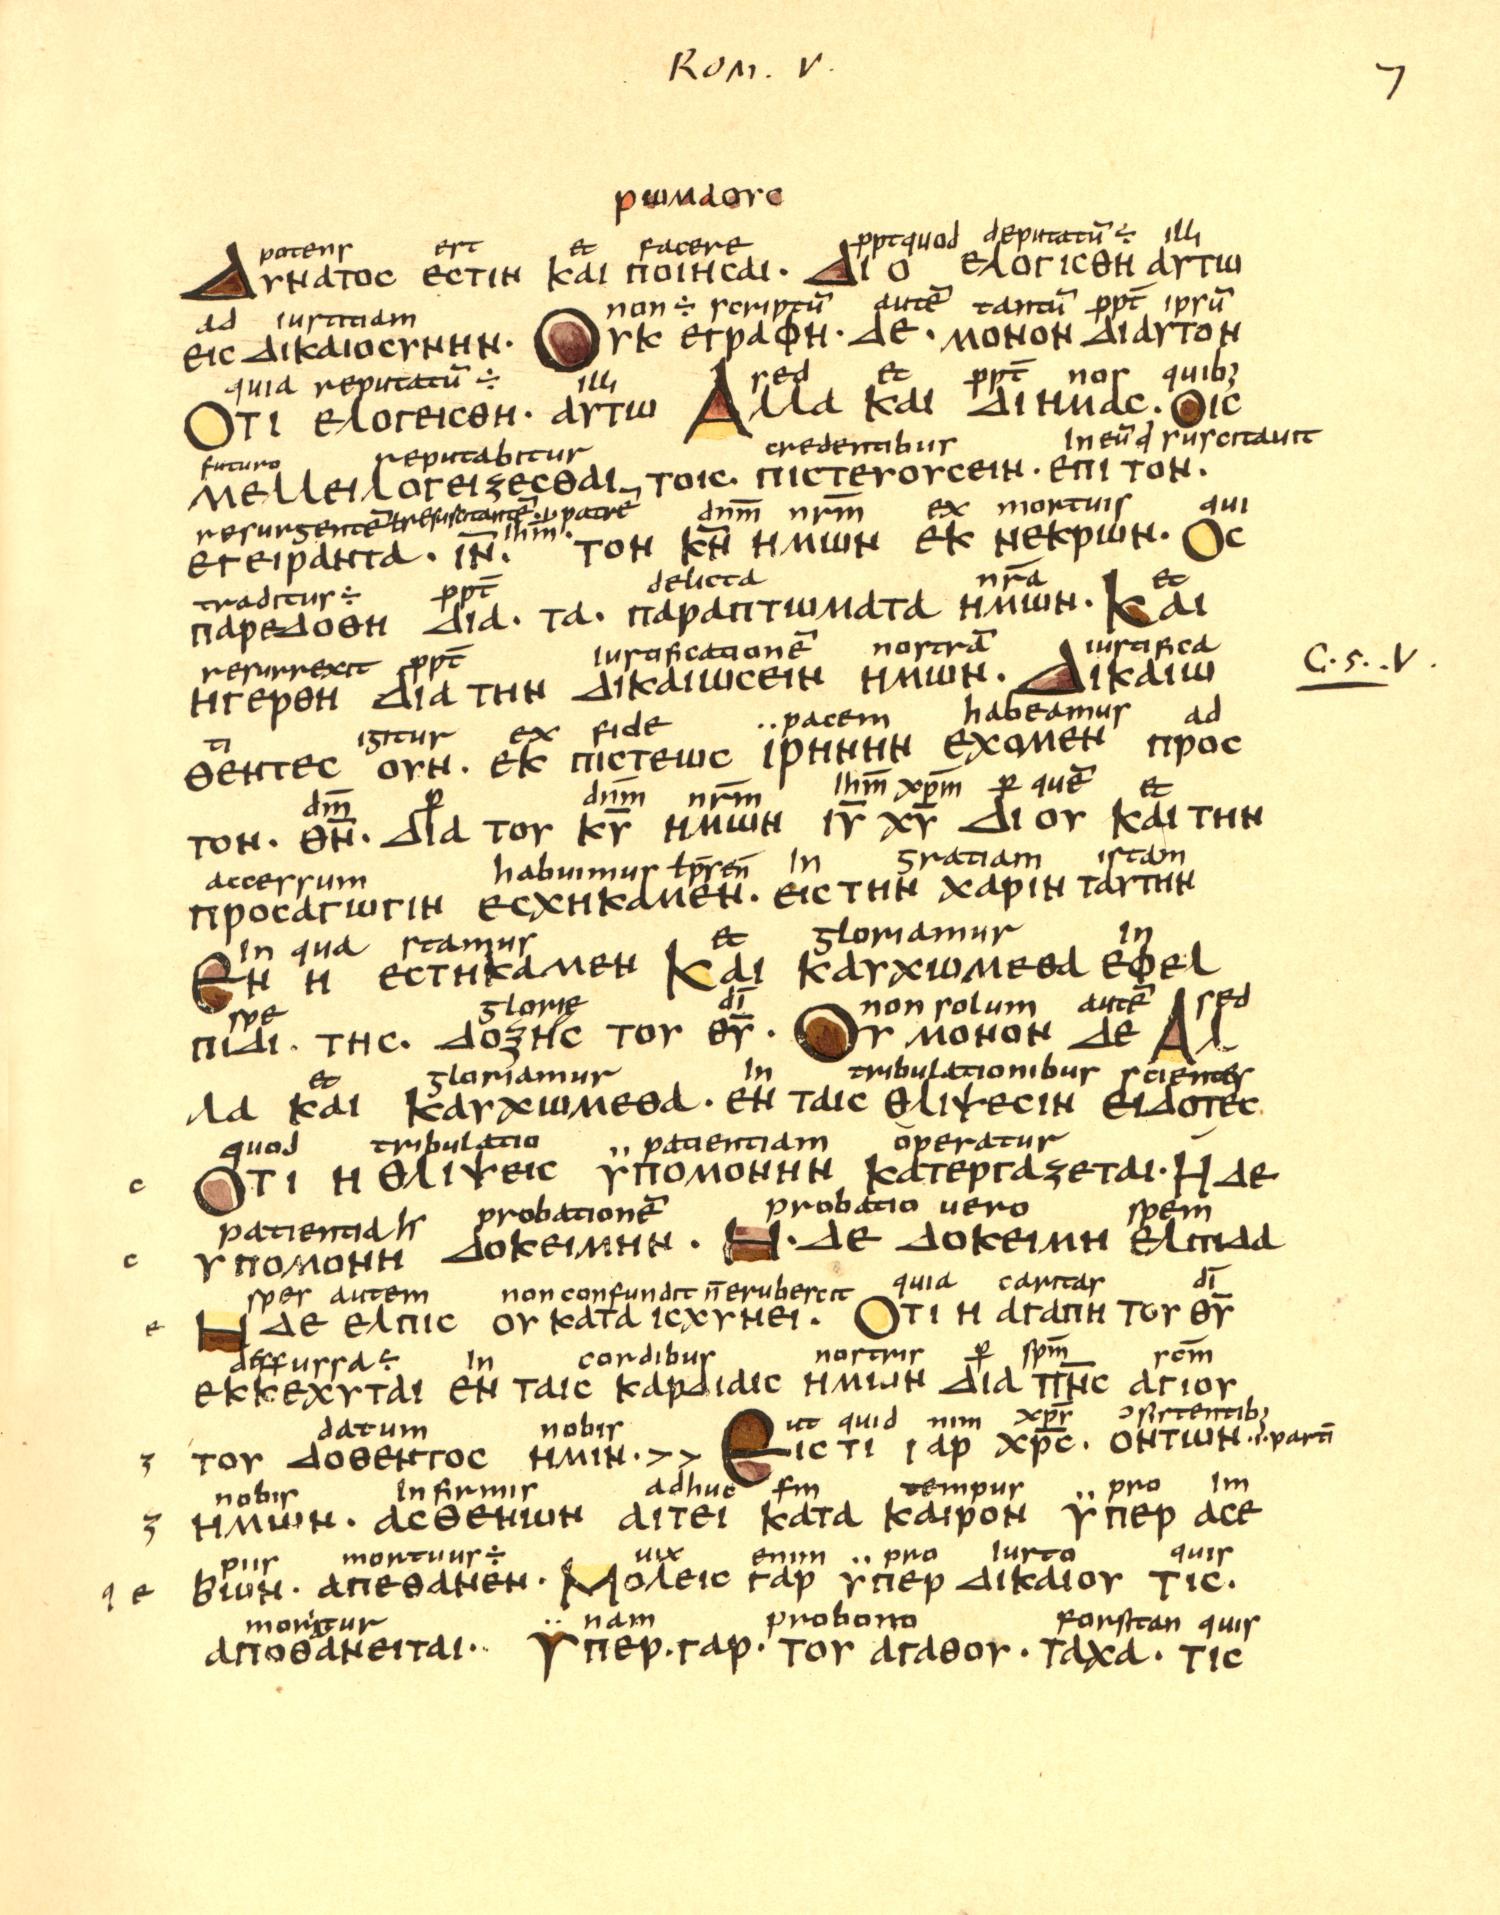 Rom. V.
7
ρωμαους
potens est et facere pptquod deputatū ÷ illi
Δυνατος εστιν και ποιησαι. Δι ο ελογισθη αυτω
ad iustitiam non÷ scriptū autē tantū ppt̄ ipsū
εις δικαιοσυνην. Ουκ εγραφη. δε. μονον διαυτον
quia reputatū ÷ illi sed et ppt̄ nos quibꝫ
Οτι ελογεισθη. αυτω Αλλα και δι ημας. οις
futuro reputabitur credentibus In eū q̄ suscitauit
μελλει λογειζεσθαι τοις. πιστευουσειν. επι τον.
resurgentē ł resuscitantē .i. patrē Ihm̄. dnm̄ nrm̄ ex mortuis qui
εγειραντα. ιν̄. τον κν̄ ημων εκ νεκρων. Ος
traditur÷ ppt̄ delicta nr̄a et
παρεδοθη δια. τα. παραπτωματα ημων. και
resurrexit ppt̄ iustificationē nostrā iustifica
ηγερθη δια την δικαιωσειν ημων. Δικαιω
C. 5. .V.
ti igitur ex fide pacem habeamus ad
θεντες ουν. εκ πιστεως ϊρηνην εχομεν προς
dm̄ ꝑ dnm̄ nrm̄ Ihm̄ xpm̄ ꝑ quē et
τον. θν̄. δια του κῡ ημων ιῡ χῡ δι ου και την
accessum habuimus ł p̄sen̄ In gratiam istam
προσαγωγιν εσχηκαμεν. εις την χαριν ταυτην
In qua stamus et gloriamur in
Εν η εστηκαμεν και καυχωμεθα εφελ
spe glorie dī non solum autē sed
πιδι. της. δοξης του θῡ. Ου μονον δε Αλ
et gloriamur In tribulationibus scientes
λα και καυχωμεθα. εν ταις θλιψεσιν ειδοτες
quod tribulatio patientiam operatur
c Οτι η θλιψεις ϋπομονην κατεργαζεται. Η δε
patientia probationē probatio uero spem
c υπομονη δοκειμην. Η. δε δοκειμη ελπιδα
spes autem non confundit n̄ erubescit quia caritas dī
e Η δε ελπις ου καταισχυνει. Οτι η αγαπη του θῡ
deffussa÷ in cordibus nostris ꝑ spm̄ scm̄
εκκεχυται εν ταις καρδιαις ημων δια πν̄ς αγιου
datum nobis ut quid nim xpr̄ ɔsistentibꝫ
ʒ του δοθεντος ημιν. >> Εις τι γαρ χρ̄ς. οντων .i. parū
nobis infirmis adhuc sm tempus pro im
ʒ ημων. ασθενων αιτει κατα καιρον ϋπερ ασε
piis mortuus÷ uix enim pro iusto quis
q e βων. απεθανεν. Μολεις γαρ ϋπερ δικαιου τις.
moritur nam probono forsitan quis
αποθανειται. Ϋπερ. γαρ. του αγαθου. ταχα. τις